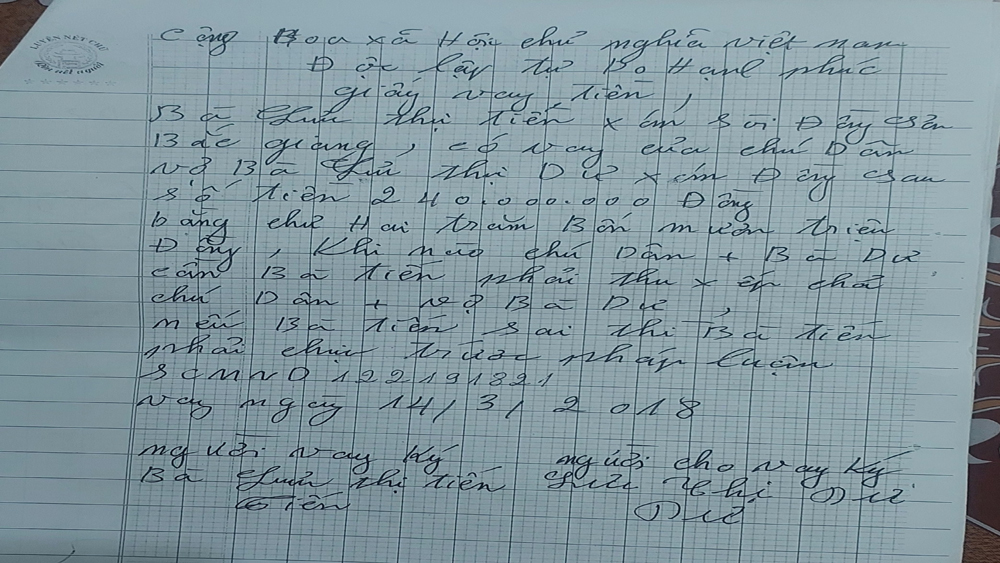 LUYỆN NÉT CHỮ
RÈN NẾT NGƯỜI
Cộng Hoa xã Hội chủ nghĩa việt nam
Độc lập tự Do Hanh phúc
giấy vay tiền,
Bà Lưu thị tiến xóm Sơi Đồng
Bắc giang, có vay của chú Dân
vở Bà Lưu thị Dư xóm Đồng
số tiền 240.000.000 Đồng
bằng chữ Hai trăm Bốn mươn triệu
Đồng, Khi nào chú Dân + Bà Dư
cần Bà tiến phải thu xếp chả
chú Dân + vợ Bà Dư,
nếu Bà tiến sai thì Bà tiến
phải chịu trước pháp luận
SCMND 122191821
vay ngay 14/3/2018
người vay Ký người cho vay Ký
Bà Lưu thị tiến Lưu thị Dư
tiến Dư